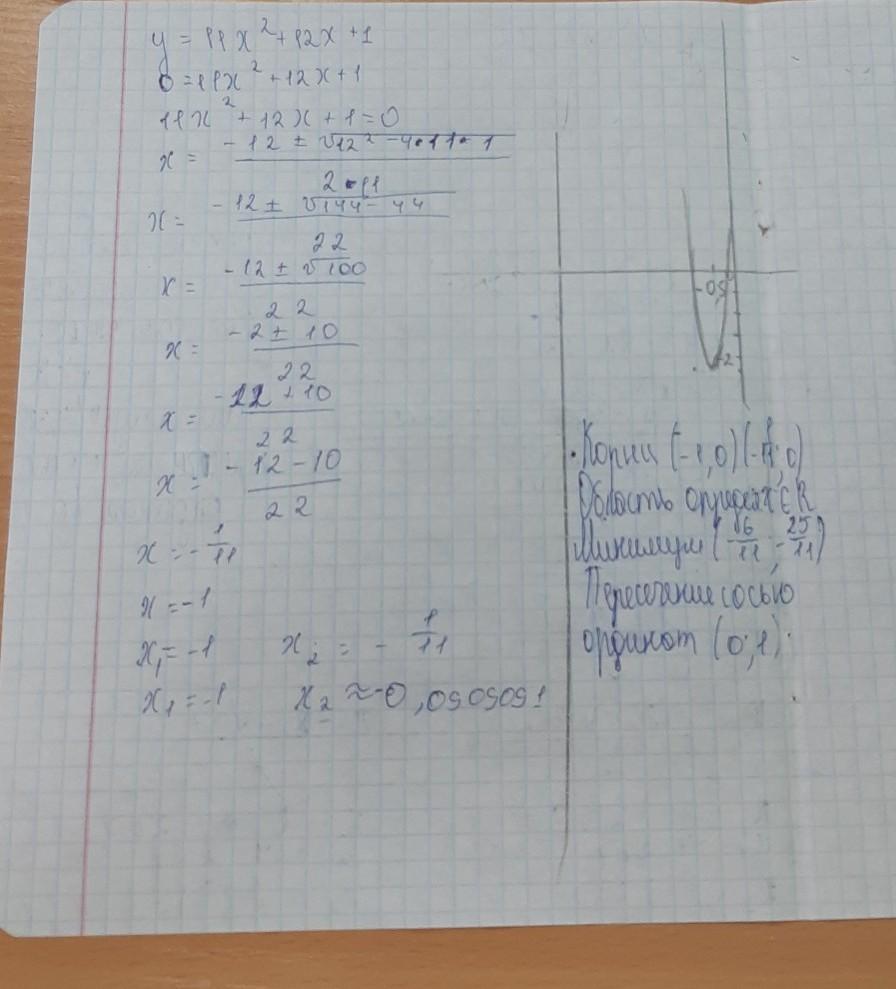 y = 11x² + 12x + 1
0 = 11x² + 12x + 1
11x² + 12x + 1 = 0
x = (-12 ± √12² - 4·11·1) / 2·11
x = (-12 ± √144 - 44) / 22
x = (-12 ± √100) / 22
x = (-2 ± 10) / 22
x = (-12 + 10) / 22
x = (-12 - 10) / 22
x = -1/11
x = -1
x₁ = -1 x₂ = -1/11
x₁ = -1 x₂ ≈ -0,0909091
-0,5
-2
Корни (-1,0) (-1/11; 0)
Область определ x ∈ R
Минимум (-6/11; -25/11)
Пересечение с осью
ординот (0; 1).